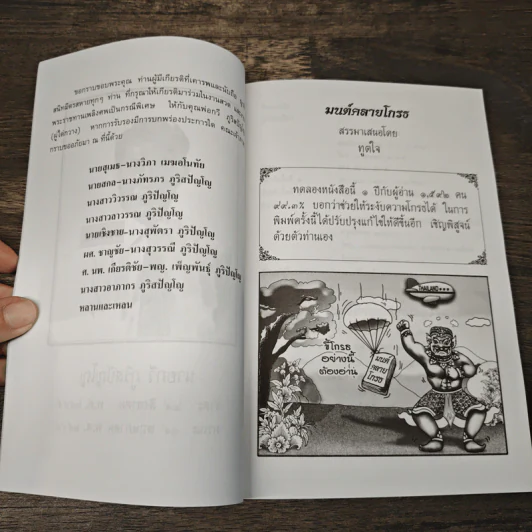 ขอกราบขอบพระคุณ ท่านผู้มีเกียรติที่เคารพและนับถือ
สนิทมิตรสหายทุกๆ ท่าน ที่กรุณาให้เกียรติมาร่วมในงานสวด
พระราชทานเพลิงศพเป็นกรณีพิเศษ ให้กับคุณพ่อกวี
(ภู่ไต่กวาง) หากการรับรองมีการบกพร่องประการใด คณะเจ้า
กราบขออภัยมา ณ ที่นี้ด้วย
นายสุเมธ-นางวิภา เมฆอโนทัย
นายสกล-นางภัทรภร ภูริสปัญโญ
นางสาววิวรรณ ภูริปัญโญ
นางสาวลาวรรณ ภูริปัญโญ
นายเชิงชาย-นางสุพัตรา ภูริปัญโญ
ผศ. ชาญชัย-นางสุวรรณี ภูริปัญโญ
ศ. นพ. เกียรติชัย-พญ. เพ็ญพันธุ์ ภูริปัญโญ
นางสาวอาภากร ภูริสปัญโญ
หลานและเหลน
มนต์คลายโกรธ
สรรหาเสนอโดย
ทูตใจ
ทดลองหนังสือนี้ ๑ ปีกับผู้อ่าน ๑,๕๙๒ คน
๙๙.๓% บอกว่าช่วยให้ระงับความโกรธได้ ในการ
พิมพ์ครั้งนี้ได้ปรับปรุงแก้ไขให้ดีขึ้นอีก เชิญพิสูจน์
ด้วยตัวท่านเอง
THAILAND
ขี้โกรธ
อย่างนี้
ต้องอ่าน
มนต์
คลาย
โกรธ